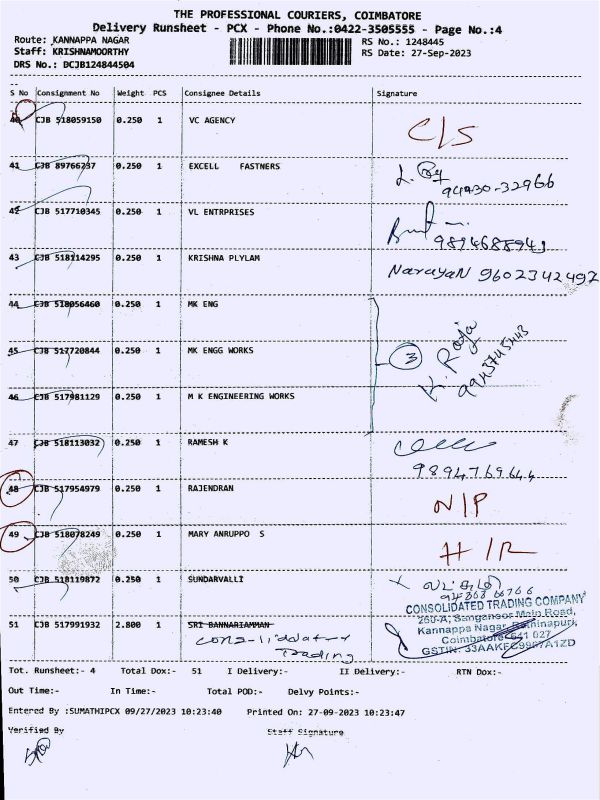 THE PROFESSIONAL COURIERS, COIMBATORE
Delivery Runsheet - PCX - Phone No.:0422-3505555 - Page No.:4
Route: KANNAPPA NAGAR
RS No.: 1248445
Staff: KRISHNAMOORTHY
RS Date: 27-Sep-2023
DRS No.: DCJB124844504
S No Consignment No Weight PCS Consignee Details Signature
40 CJB 518059150 0.250 1 VC AGENCY C/S
41 CJB 89766237 0.250 1 EXCELL FASTNERS 94430-32966
42 CJB 517710345 0.250 1 VL ENTRPRISES 9894688949
43 CJB 518114295 0.250 1 KRISHNA PLYLAM Narayan 9602342492
44 CJB 518056460 0.250 1 MK ENG
45 CJB 517720844 0.250 1 MK ENGG WORKS 3 K. Raja
46 CJB 517981129 0.250 1 M K ENGINEERING WORKS
47 CJB 518113032 0.250 1 RAMESH K 9894769644
48 CJB 517954979 0.250 1 RAJENDRAN N/P
49 CJB 518078249 0.250 1 MARY ANRUPPO S H/R
50 CJB 518119872 0.250 1 SUNDARVALLI
51 CJB 517991932 2.800 1 SRI BANNARIAMMAN
Trading
CONSOLIDATED TRADING COMPANY
260-A, Sanganoor Main Road,
Kannappa Nagar, Rathinapuri,
Coimbatore-641 027
Tot. Runsheet:- 4 Total Dox:- 51 I Delivery:- II Delivery:- RTN Dox:-
Out Time:- In Time:- Total POD:- Delvy Points:-
Entered By :SUMATHIPCX 09/27/2023 10:23:40 Printed On: 27-09-2023 10:23:47
Verified By Staff Signature